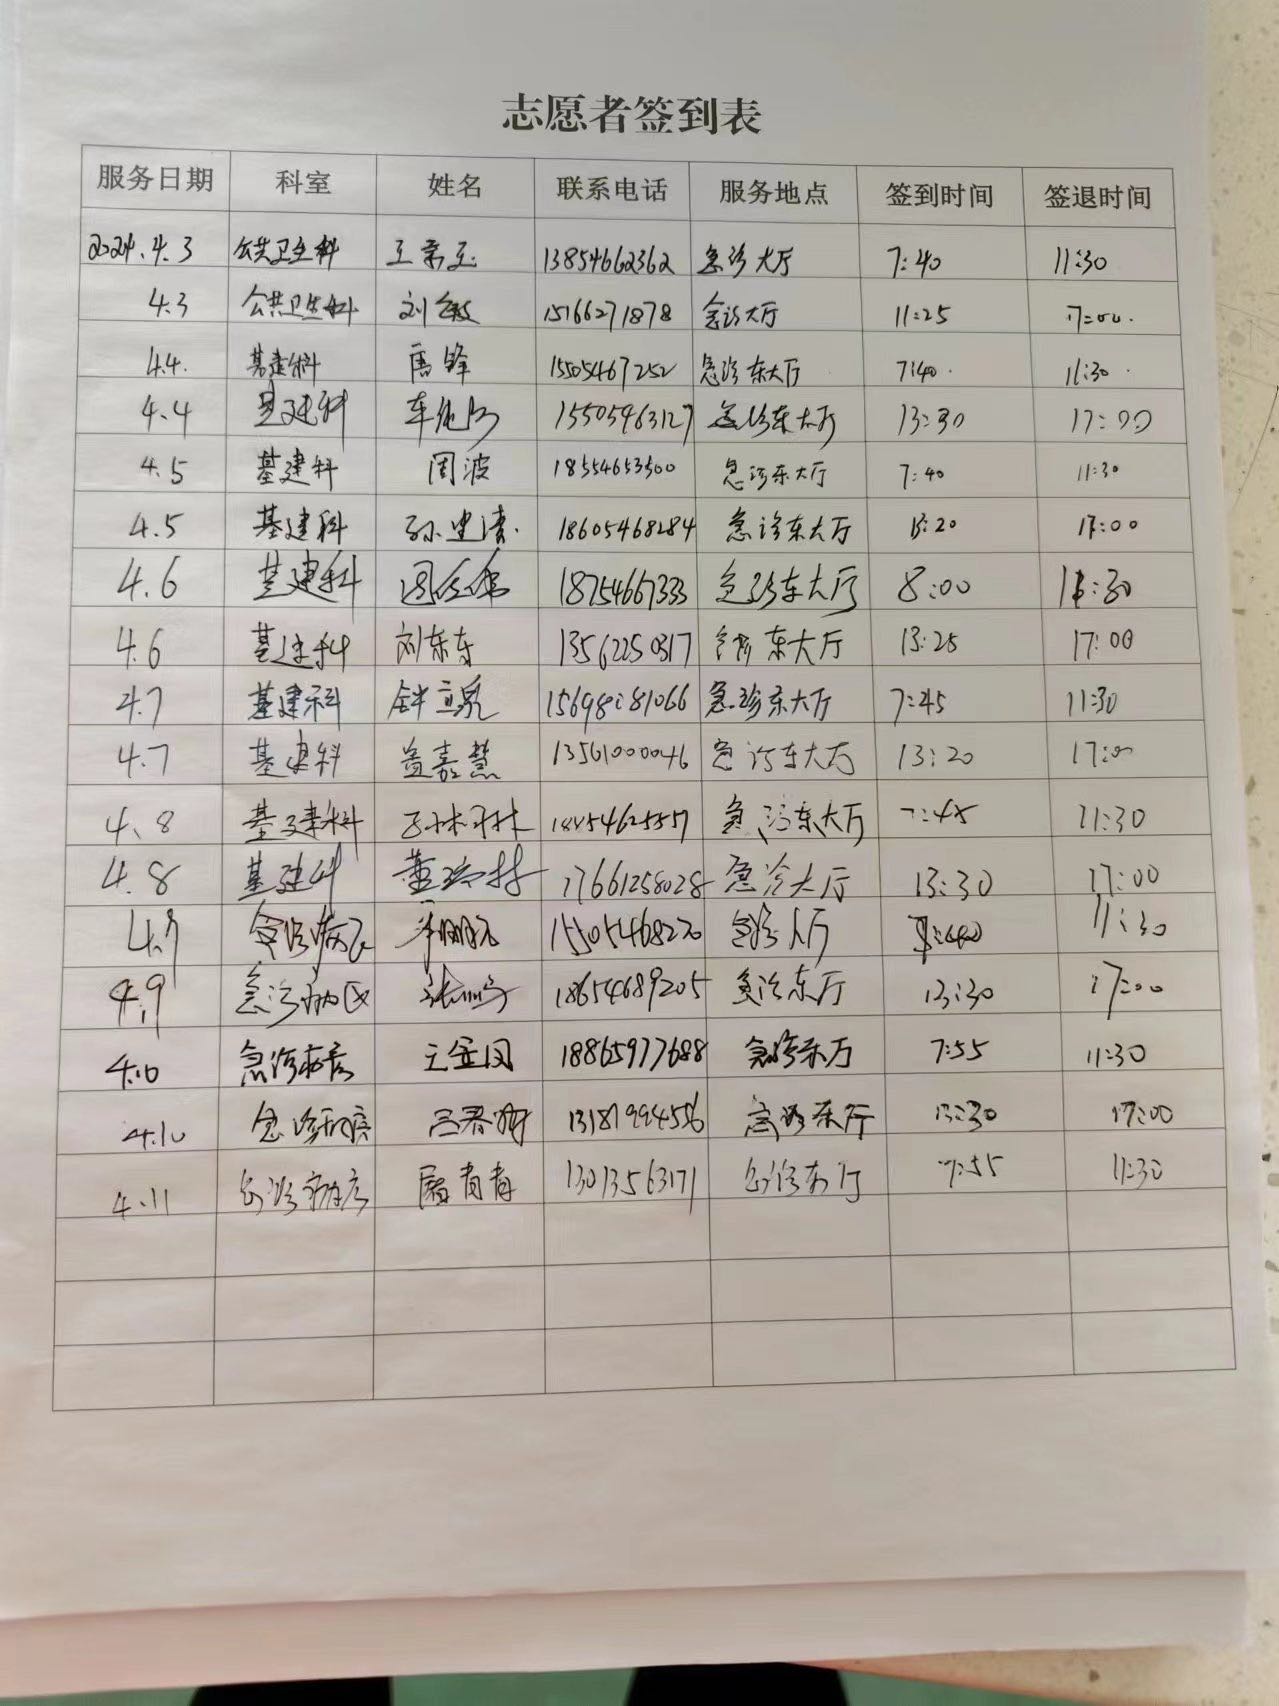 志愿者签到表
服务日期 科室 姓名 联系电话 服务地点 签到时间 签退时间
2024.4.3 公共卫生科 13854662362 急诊大厅 7:40 11:30
4.3 公共卫生科 刘敏 15166271878 急诊大厅 11:25 17:00.
4.4. 基建科 唐锋 15505467252 急诊东大厅 7:40. 11:30.
4.4 基建科 15505463127 急诊东大厅 13:30 17:00
4.5 基建科 周波 18554653500 急诊东大厅 7:40 11:30
4.5 基建科 孙建涛. 18605468284 急诊东大厅 13:20 17:00
4.6 基建科 18754667333 急诊东大厅 8:00 11:30
4.6 基建科 刘东东 13562250317 急诊东大厅 13:25 17:00
4.7 基建科 15698181066 急诊东大厅 7:45 11:30
4.7 基建科 盖嘉慧 13561000046 急诊东大厅 13:20 17:00
4.8 基建科 急诊东大厅 7:45 11:30
4.8 基建科 17661258028 急诊大厅 13:30 17:00
4.9 急诊病区 15505468270 急诊大厅 11:30
4.9 急诊病区 18654689205 急诊东厅 13:30 17:00
4.10 急诊病房 18865977688 急诊东厅 7:55 11:30
4.10 急诊病房 13181994556 急诊东厅 13:30 17:00
4.11 急诊病房 屠青青 13013563171 急诊东厅 7:55 11:30